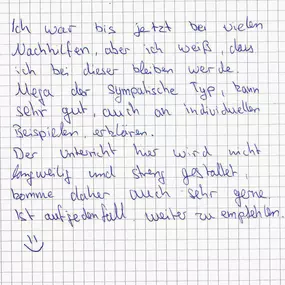 Ich war bis jetzt bei vielen
Nachhilfen, aber ich weiß, dass
ich bei dieser bleiben werde.
Mega der sympatische Typ, kann
sehr gut, auch an individuellen
Beispielen, erklären.
Der Unterricht hier wird nicht
langweilig und streng gestaltet,
komme daher auch sehr gerne
Ist aufjedenfall weiter zu empfehlen.